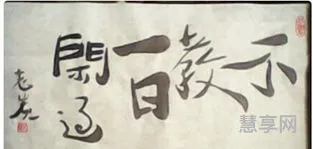 不
教
一日
閑過
老
慧享网